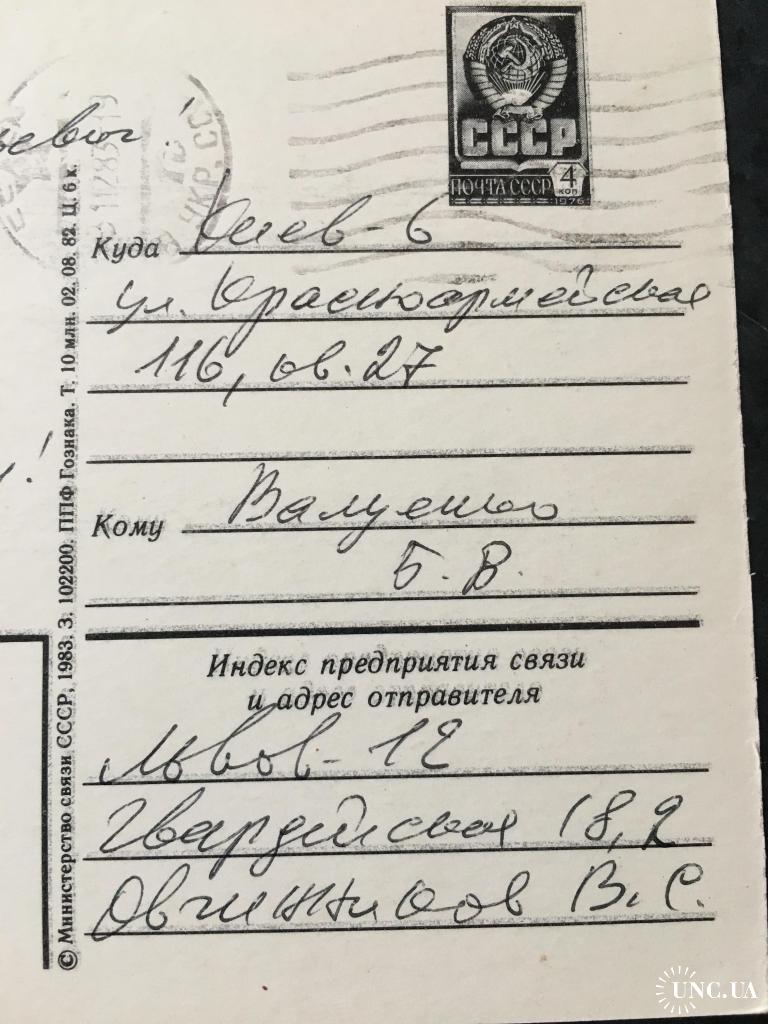 СССР
ПОЧТА СССР 4 КОП
1976
Куда Киев-6
ул. Красноармейская
116, кв. 27
Кому Валуенко
Б. В.
Индекс предприятия связи
и адрес отправителя
Львов-12
Гвардейская 18,2
Овчинников В. С.
© Министерство связи СССР, 1983. З. 102200. ППФ Гознака. Т. 10 млн. 02. 08. 82. Ц. 6 к.
UNC.UA